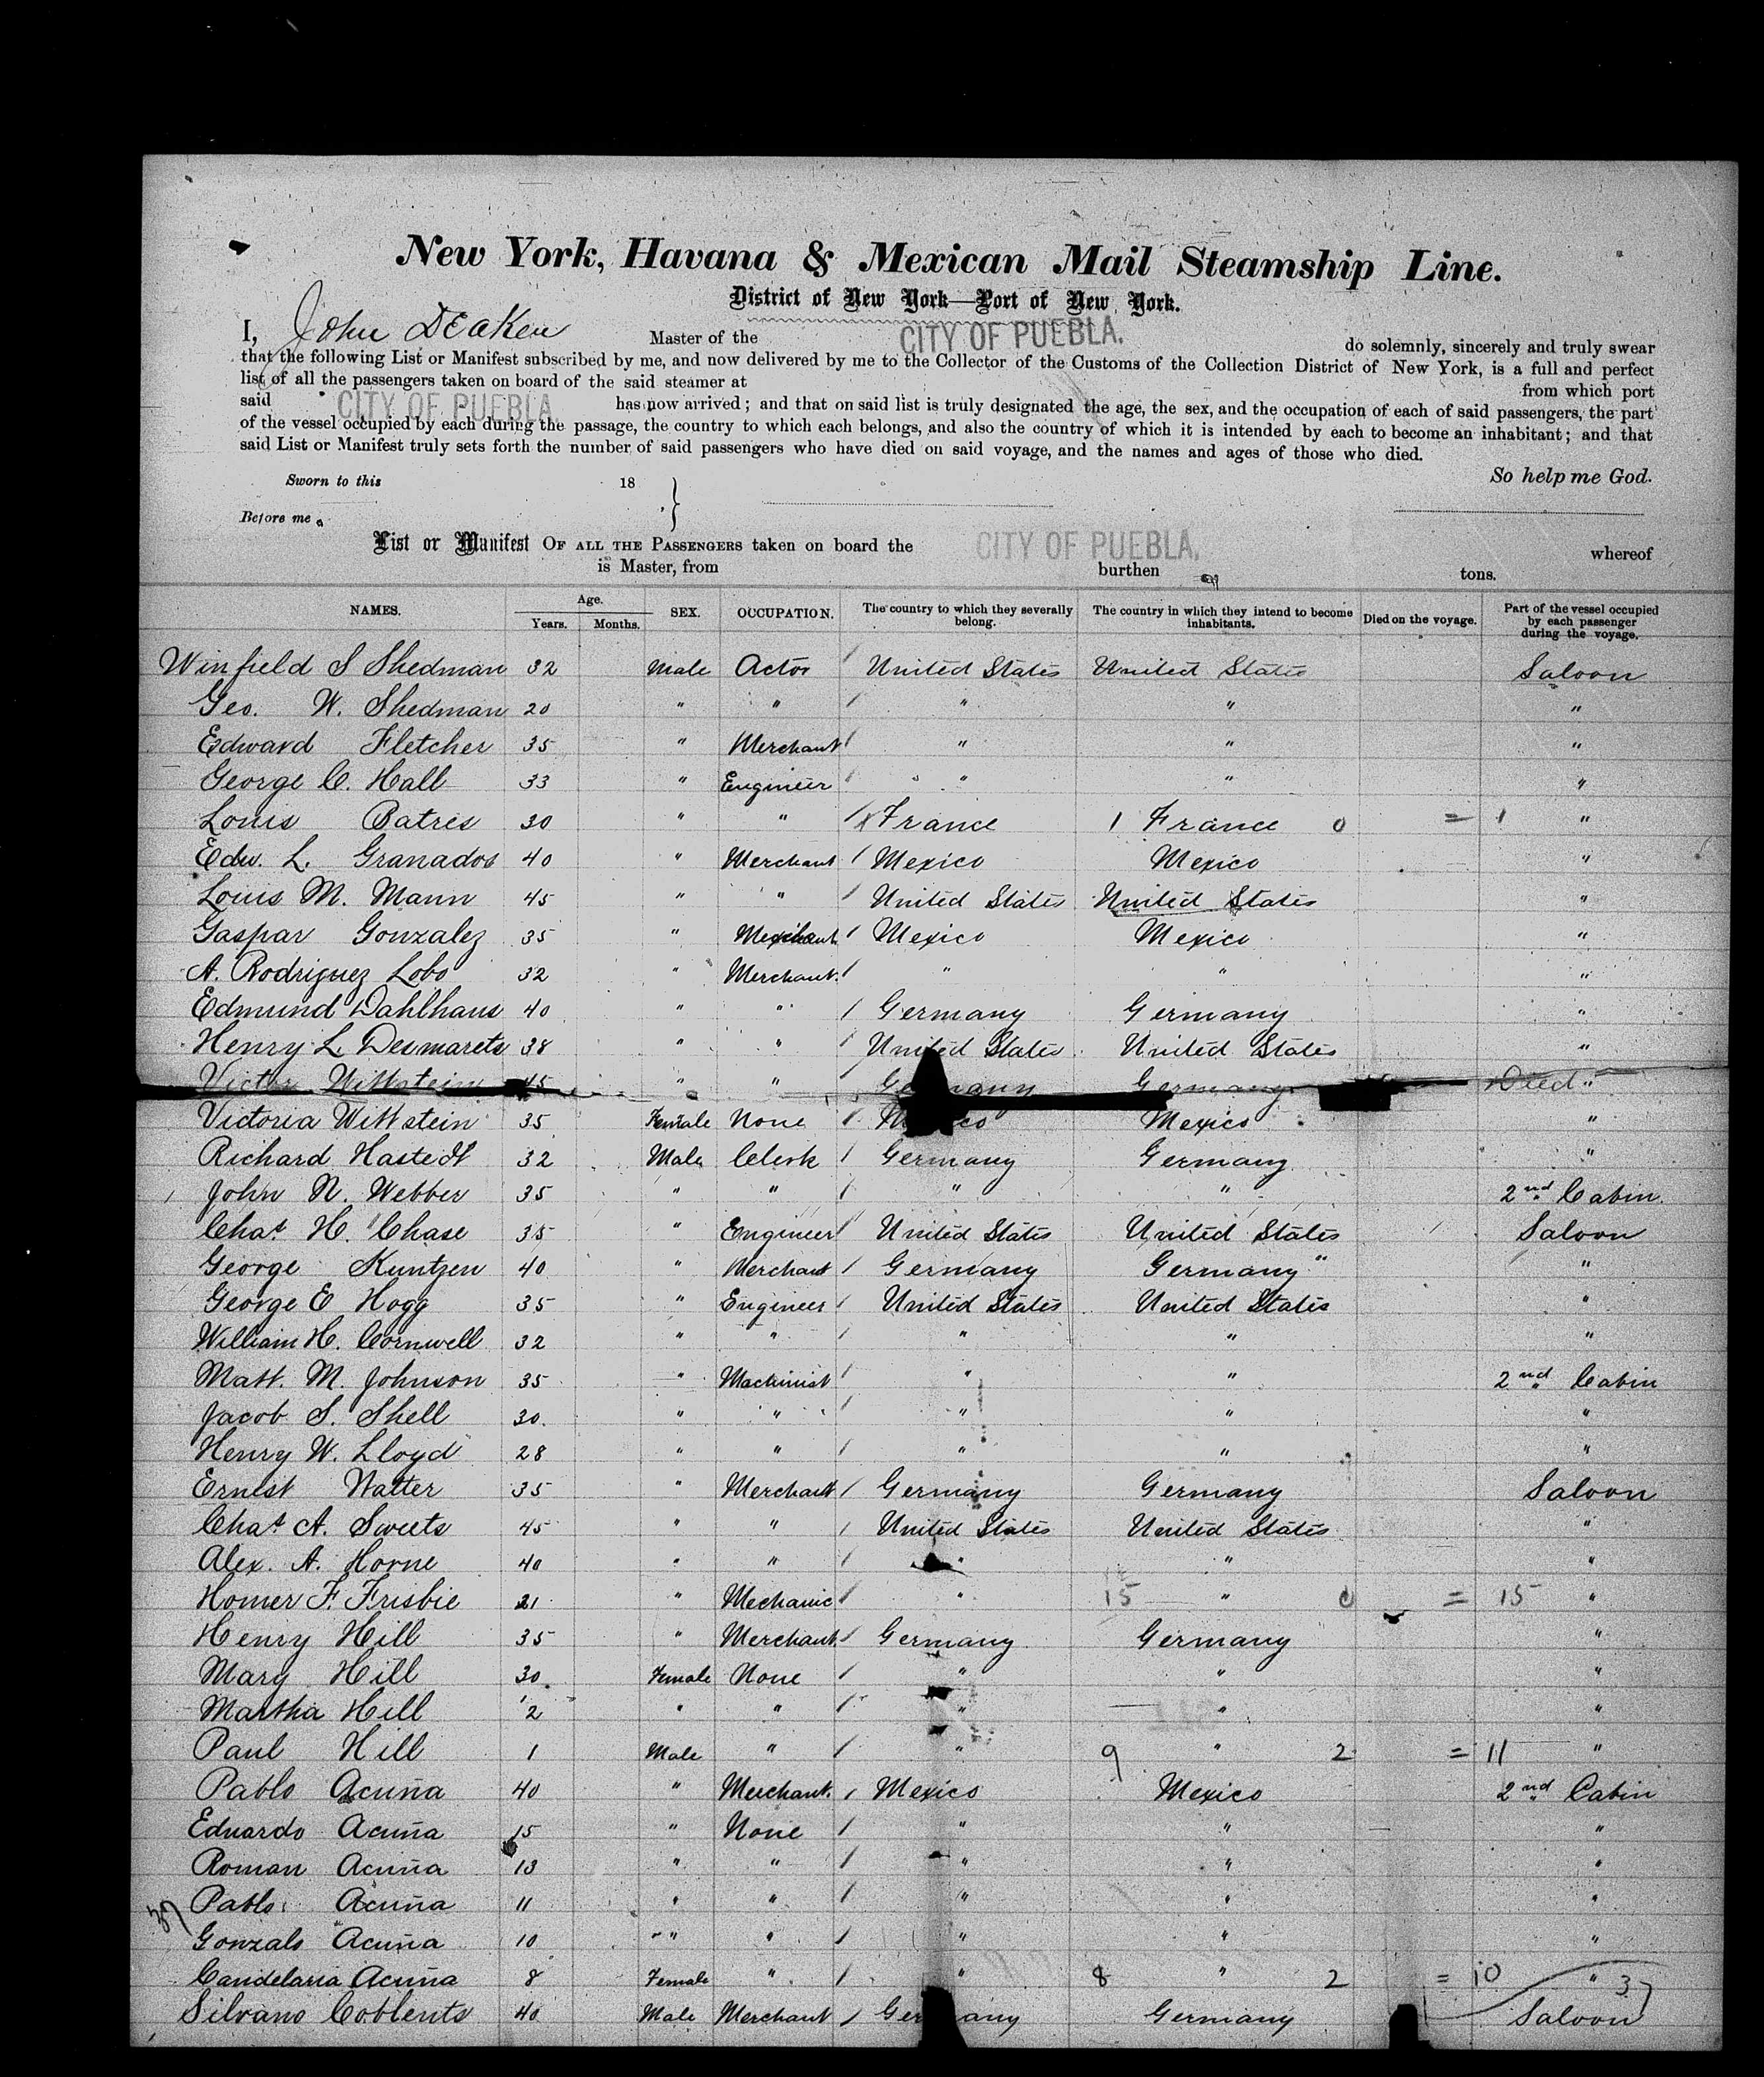 New York, Havana & Mexican Mail Steamship Line.
District of New York—Port of New York.
I, John Deaken Master of the CITY OF PUEBLA. do solemnly, sincerely and truly swear
that the following List or Manifest subscribed by me, and now delivered by me to the Collector of the Customs of the Collection District of New York, is a full and perfect
list of all the passengers taken on board of the said steamer at from which port
said CITY OF PUEBLA has now arrived; and that on said list is truly designated the age, the sex, and the occupation of each of said passengers, the part
of the vessel occupied by each during the passage, the country to which each belongs, and also the country of which it is intended by each to become an inhabitant; and that
said List or Manifest truly sets forth the number of said passengers who have died on said voyage, and the names and ages of those who died.
So help me God.
Sworn to this 18 }
Before me
List or Manifest OF ALL THE PASSENGERS taken on board the CITY OF PUEBLA. whereof
is Master, from burthen tons.
NAMES. Age. Years. Months. SEX. OCCUPATION. The country to which they severally belong. The country in which they intend to become inhabitants. Died on the voyage. Part of the vessel occupied by each passenger during the voyage.
Winfield S Shedman 32 Male Actor / United States United States Saloon
Geo. W. Shedman 20 " " / " " "
Edward Fletcher 35 " Merchant / " " "
George C. Hall 33 " Engineer / " " "
Louis Batres 30 " " / France 1 France 0 = 1 "
Edw. L. Granados 40 " Merchant / Mexico Mexico "
Louis M. Mann 45 " " / United States United States "
Gaspar Gonzalez 35 " Merchant / Mexico Mexico "
A. Rodriguez Lobo 32 " Merchant. / " " "
Edmund Dahlhaus 40 " " / Germany Germany "
Henry L. Desmarets 38 " " / United States United States "
Victor Wittstein 45 " " Germany Germany Died "
Victoria Wittstein 35 Female None / Mexico Mexico "
Richard Hastedt 32 Male Clerk / Germany Germany "
John N. Webber 35 " " / " " 2nd Cabin.
Chas H. Chase 35 " Engineer / United States United States Saloon
George Kuntzen 40 " Merchant / Germany Germany "
George E Hogg 35 " Engineer / United States United States "
William H. Cornwell 32 " " / " " "
Matt. M. Johnson 35 " Machinist / " " 2nd Cabin
Jacob S. Shell 30. " " / " " "
Henry W. Lloyd 28 " " / " " "
Ernest Walter 35 " Merchant / Germany Germany Saloon
Chas A. Sweets 45 " " / United States United States "
Alex. A. Horne 40 " " / " " "
Homer F. Frisbie 21 " Mechanic / " 15 " 0 = 15 "
Henry Hill 35 " Merchant / Germany Germany "
Mary Hill 30 Female None / " " "
Martha Hill 2 " " / " " "
Paul Hill 1 Male " / " 9 " 2 = 11 "
Pablo Acuña 40 " Merchant. / Mexico Mexico 2nd Cabin
Eduardo Acuña 15 " None / " " "
Roman Acuña 13 " " / " " "
37 Pablo Acuña 11 " " / " " "
Gonzalo Acuña 10 " " / " " "
Candelaria Acuña 8 Female " / " 8 " 2 = 10 " 37
Silvano Coblents 40 Male Merchant / Germany Germany Saloon